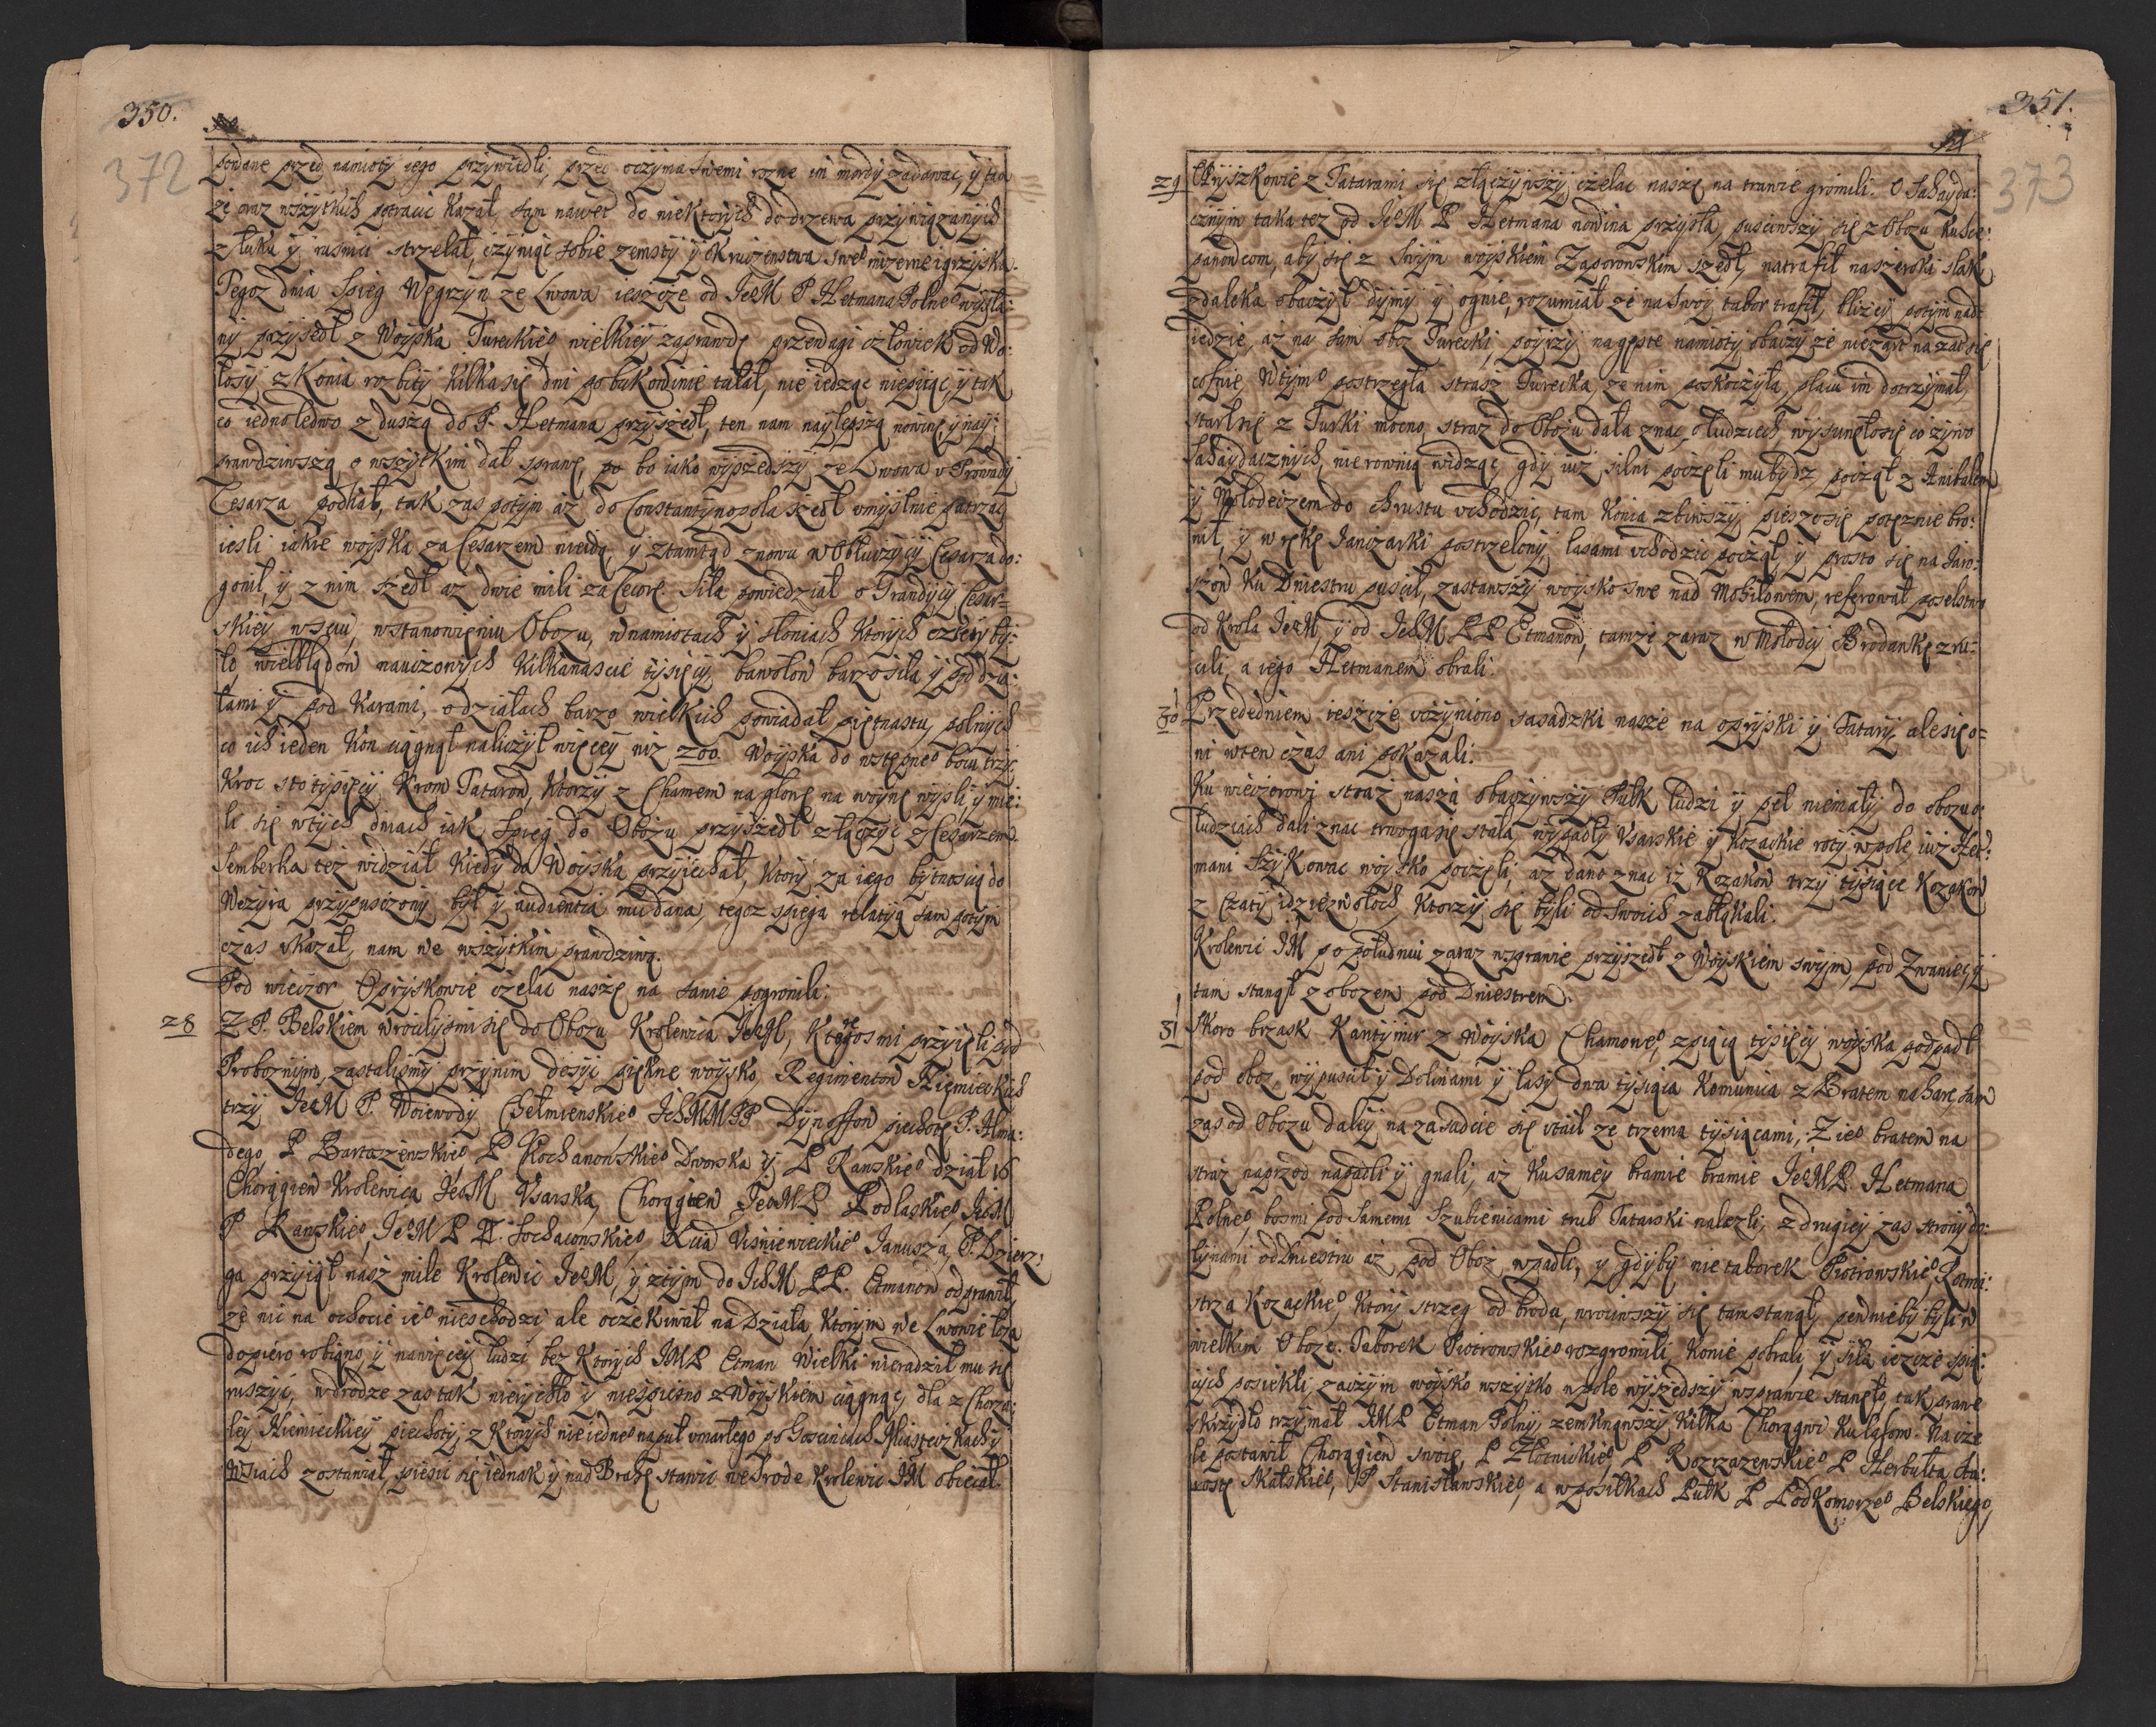 350.
372
podane przed namioty iego przywiedli, przed oczyma swemi rozne im mordy zadawac, y tak
że oraz wszytkich potracic kazał, sam nawet do niektorych do drzewa przywiązanych
z łuku y rusnice strzelał, czyniąc sobie zemsty y okrucienstwa sweº mizerne igrzyska.
Tegoz dnia Spieg Węgrzyn ze Lwowa ieszcze od JeºM P Hetmana Polneº wysła:
ny przyszedł z Woyska Tureckieº wielkiey zaprawdę przewagi człowiek od Wo:
łoszy z konia rozbity kilka się dni po bukowinie tułał, nie iedząc niepiiąc, y tak
co iedno ledwo z duszą do P. Hetmana przyszedł, ten nam naylepszą nowinę, y nay:
prawdziwszą, o wszytkim dał sprawę, bo iako wyszedszy ze Lwowa
Cesarza potkał, tak zas potym aż do Constantynopola szedł umyslnie patrząc
iesli iakie woyska za Cesarzem nieidą, y ztamtąd znowu w Obłuczycy Cesarza do:
gonił, y z nim szedł aż dwie mili za Cecorę. Siła powiedział o Grandycy Cesar=
skiey w sciu, w stanowieniu Obozu, w namiotach y słoniach, ktorych czterzy by:
ło, wielbłądow nauczonych kilkanascie tysięcy, bawołow barzo siła y pod dzia:
łami y pod karami, o działach barzo wielkich powiadał piętnastu, polnych
co ich ieden kon ciągnął naliczył więcey niż 200. Woyska do wstępneº boiu trzy
kroc sto tysięcy krom Tatarow, ktorzy z Chamem na głowę na woynę wyszli, y mie:
li się w tych dniach iak Spieg do Obozu przyszedł złączyc z Cesarzem.
Semberka też widział kiedy do Woyska przyiechał, ktory za iego bytnoscią do
Wezyra przypusczony był y audientia mu dana, tegoz spiega relatyą sam potym
czas ukazał, nam we wszytkim prawdziwą.
Pod wieczor Opryskowie czeladz naszę na sanie pogromili.
28 Z P. Belskiem wrocilismi się do Obozu Krolewica JeºM, ktoregosmi przyięli pod
Proboznym, zastalismy przynim dosyc piękne woysko, Regimentow Niemieckich
trzy JeºM P. Woiewody Chełmienskieº JchMMPP Dynoffow piechotę P. Alma:
dego, P Bartaszewskieº, P Kochanowskieº Dworska y P Ranskieº dział 16
Chorągiew Krolewica JeºM Usarska, Chorągiew JeºMP Podlaskieº, JeºM
P Ranskieº, JeºM P P. Sochaczowskieº Xcia Wisniewieckieº Janusza, P. Dzierz:
ga przyiął nasz mile Krolewic JeºM, y z tym do JchM PP. Etmanow odprawił
że nic na ochocie ieº nieschodzi, ale oczekiwał na Działa, ktorym we Lwowie łoża
dopiero robiono, y nawięcey ludzi bez ktorych JMP Etman Wielki nieradził mu się
ruszyc, w drodze zas tak nierychło y niespieszno z Woyskiem ciągnąc, dla zchorza:
łey Niemieckiey piechoty, z ktorych nie iedneº napuł umarłego po Goscincach Miasteczkach y
Wsiach zostawiał, piesci się iednak y nad Brahę stawic we srode Krolewic JM obiecał.
351.
373
29 Opryszkowie z Tatarami się złączywszy czeladz naszę na trawie gromili. O Sahayda:
cznym taka też od JeºM P Hetmana nowina przyszła, pusciwszy się z Obozu ku swe:
panowcom, aby się z swym woyskiem Zaporowskim szedł, natrafił na szeroki slak
zdaleka obaczył dymy y ognie, rozumiał że na swoy tabor trafił, bliżey potym nad:
iedzie, aż na sam oboz Turecki, poyrzy na gęste namioty obaczy że nieżart nazad się
cofnie, W tymº postrzegła straż Turecka, za nim poskoczyła, placu im dotrzymał,
starł się z Turki mocno, straż do Obozu dała znac o ludziech, wysunęłosię co żywo
Sahaydacznych, nie rownią widząc, gdy iuż silni poczęli mu bydz, począł z Anibalem
y Mołodeczem do chrustu uchodzic, tam konia zbiwszy, pieszo się potęznie bro:
nił, y w rękę Janiczarki postrzelony lasami uchodzic począł, y prosto się na Jaro:
szow ku Dniestru puscił, zastawszy woysko swe nad Mohilowem, referował poselstwo
od Krola JeºM, y od JchM PP Etmanow, tamze zaraz w Mołodcy Brodawkę zrzu:
cili, a iego Hetmanem obrali.
30 Przededniem ieszcze uczyniono zasadzki nasze na opryski y Tatary, ale się o=
ni wten czas ani pokazali.
Ku wieczorowi straż nasza obaczywszy Pułk ludzi y pył niemały do obozu o
ludziach dali znac, trwoga się stała, wypadły Usarskie y Kozackie roty w pole, iuż Het:
mani szykowac woysko poczęli, aż dano znac iż Kozakow trzy tysiące Kozakow
z Czaty idzie z Wołoch, ktorzy się byli od swoich zabłąkali.
Krolewic JM po południu zaraz w sprawie przyszedł z Woyskiem swym, pod Zwaniec, y
tam stanął z obozem pod Dniestrem.
31 Skoro brzask Kantymir z Woyska Chamoweº, z piącią tysięcy woyska podpadł
pod oboz, wypuscił y Dolinami y lasy dwa tysiąca Komunica z Bratem na harc, sam
zas od Obozu daley na zasadcie się utaił ze trzema tysiącami; Z ieº bratem na
straż naprzod napadli y gnali, aż ku samey bramie bramie JeºMP. Hetmana
Polneº, bosmi pod samemi Szubienicami trup Tatarski nalezli, z drugiey zas strony do:
lynami od Dniestru aż pod Oboz wpadli, y gdyby nie taborek Piotrowskieº Rotmi:
strza Kozackieº, ktory strzeg od brodu, wrociwszy się tam stanął, pewnieby byli w
wielkim Oboze. Taborek Piotrowskieº rozgromili, konie pobrali, y siła ieszcze spią:
cych posiekli, zaczym woysko wszysko w pole wyszedszy w sprawie stanęło, tak prawe
skrzydło trzymał JMP Etman Polny, zemknąwszy kilka Chorągwi ku lasom. Na cze
le postawił Chorągiew swoię, P Złotnickieº, P Rozrazewskieº P Herbułta Sta:
rostę Skalskieº, P Stanisławskieº, a w posiłkach Pułk P Podkomorzeº Belskiego,